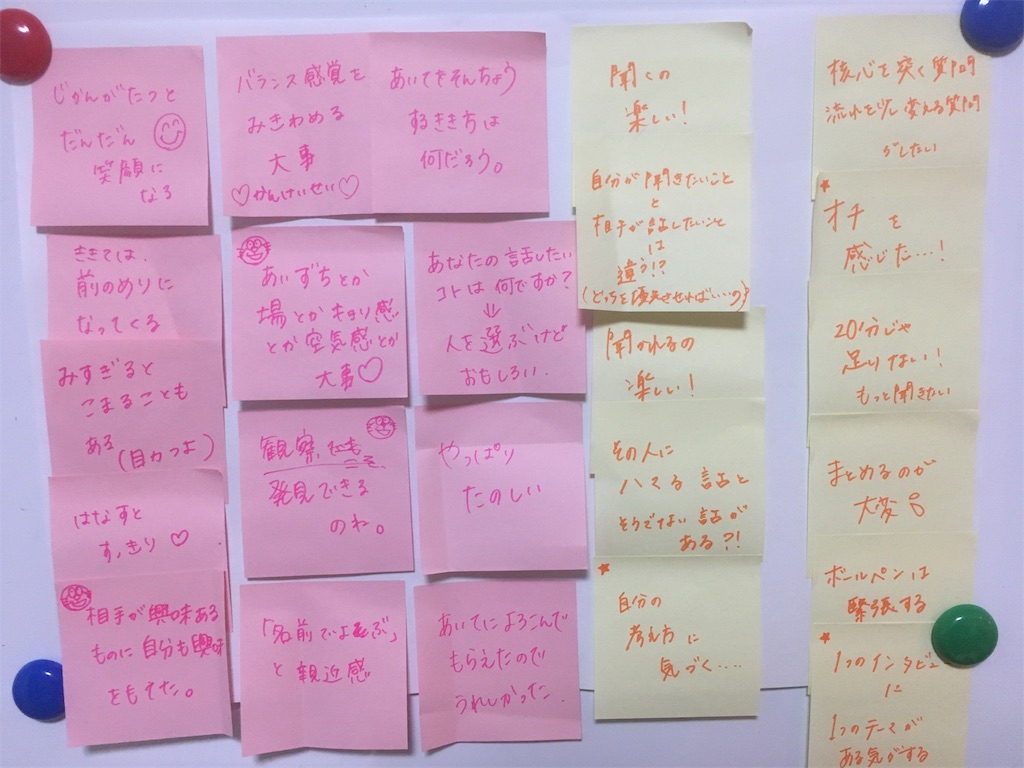 じかんがたつと
だんだん
笑顔に
なる
ききては、
前のめりに
なってくる
みすぎると
こまることも
ある(目力つよ)
はなすと
すっきり♡
相手が興味ある
ものに自分も興味
をもてた。
バランス感覚を
みきわめる
大事
♡かんけいせい♡
あいてをそんちょう
するきもちは
何だろう。
あいずちとか
場とかキョリ感
とか空気感とか
大事♡
あなたの話したい
コトは何ですか?
⇓
人を選ぶけど
おもしろい.
観察でも
こそ
発見できる
のね。
やっぱり
たのしい
「名前でよぶ」
と親近感
あいてによろこんで
もらえたので
うれしかった.
聞くの
楽しい!
自分が聞きたいこと
と
相手が話したいこと
は
違う!?
(どっちを優先させればいいの)
聞かれるの
楽しい!
その人に
ハマる話と
そうでない話が
ある?!
★
自分の
考え方に
気づく....
核心を突く質問
流れを少し変える質問
がしたい
★
オチを
感じた...!
20分じゃ
足りない!
もっと聞きたい
まとめるのが
大変
ボールペンは
緊張する
★
1つのインタビュー
に
1つのテーマが
ある気がする